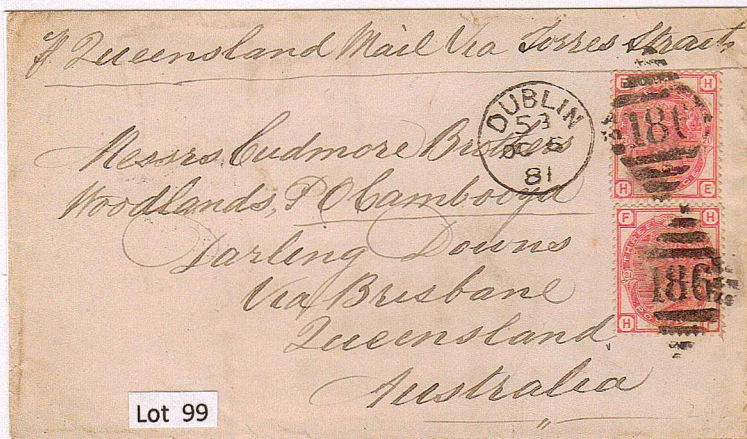 ℘ Queensland Mail Via Torres Straits
DUBLIN
5 B
OC 6
81
E H
186
H E
Messrs Cudmore Brothers
Woodlands, P O Cambooya
Darling Downs
Via Brisbane
Queensland
Australia
F H
THREE
186
H F
Lot 99